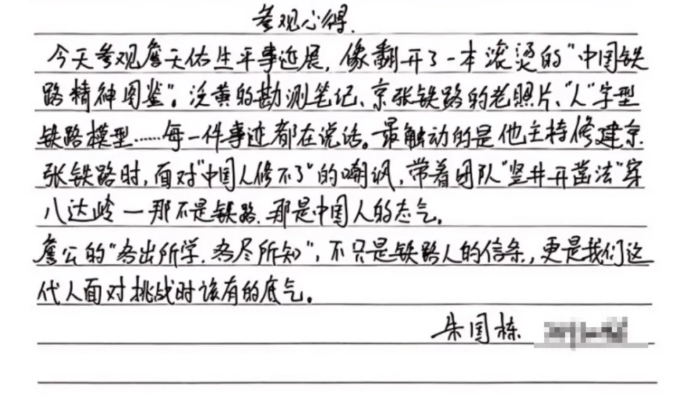 参观心得
今天参观詹天佑生平事迹展，像翻开了一本滚烫的“中国铁
路精神图鉴”。泛黄的勘测笔记、京张铁路的老照片、“人”字型
铁路模型……每一件事迹都在说话。最触动的是他主持修建京
张铁路时，面对“中国人修不了”的嘲讽，带着团队“竖井开凿法”穿
八达岭—那不是铁路，那是中国人的志气。
詹公的“各出所学，各尽所知”，不只是铁路人的信条，更是我们这
代人面对挑战时该有的底气。
朱国栋